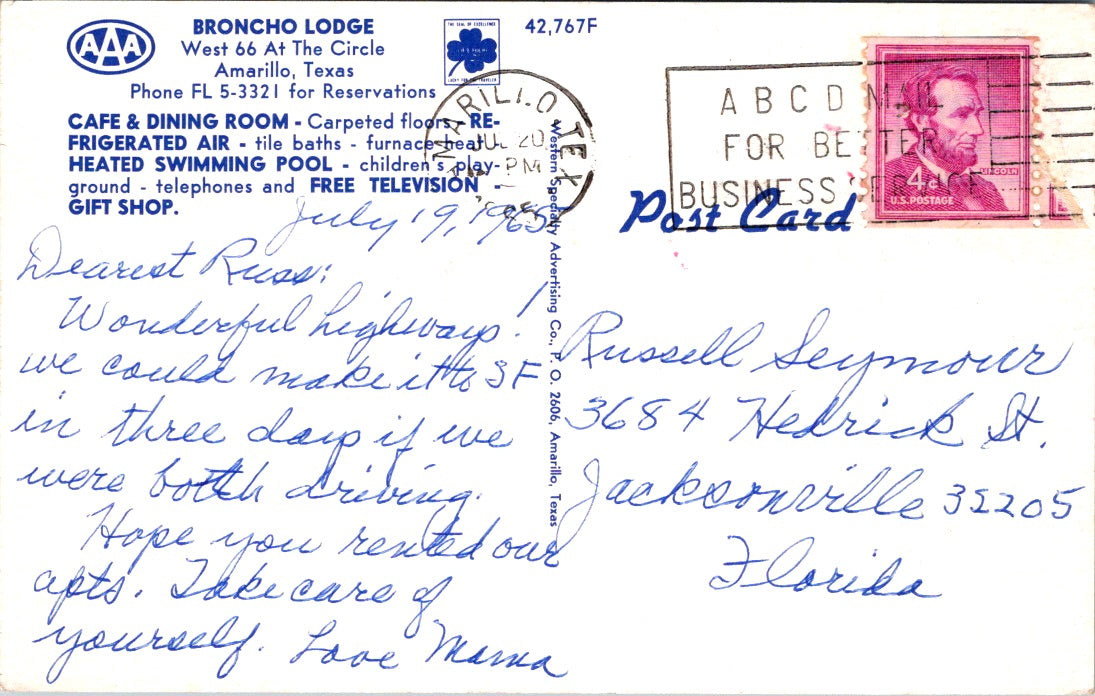 AAA
BRONCHO LODGE
West 66 At The Circle
Amarillo, Texas
Phone FL 5-3321 for Reservations
CAFE & DINING ROOM - Carpeted floors - RE-
FRIGERATED AIR - tile baths - furnace heat -
HEATED SWIMMING POOL - children's play-
ground - telephones and FREE TELEVISION -
GIFT SHOP.
THE SEAL OF EXCELLENCE
LUCKY FOR THE TRAVELER
42,767F
AMARILLO TEX
JUL 20
PM
1965
A B C D MAIL
FOR BETTER
BUSINESS SERVICE
LINCOLN
4¢
U.S. POSTAGE
Post Card
July 19, 1965
Dearest Russ:
Wonderful highways!
we could make it to SF
in three days if we
were both driving.
Hope you rented our
apts. Take care of
yourself. Love Mama
Western Specialty Advertising Co., P. O. 2606, Amarillo, Texas
Russell Seymour
3684 Hedrick St.
Jacksonville 32205
Florida